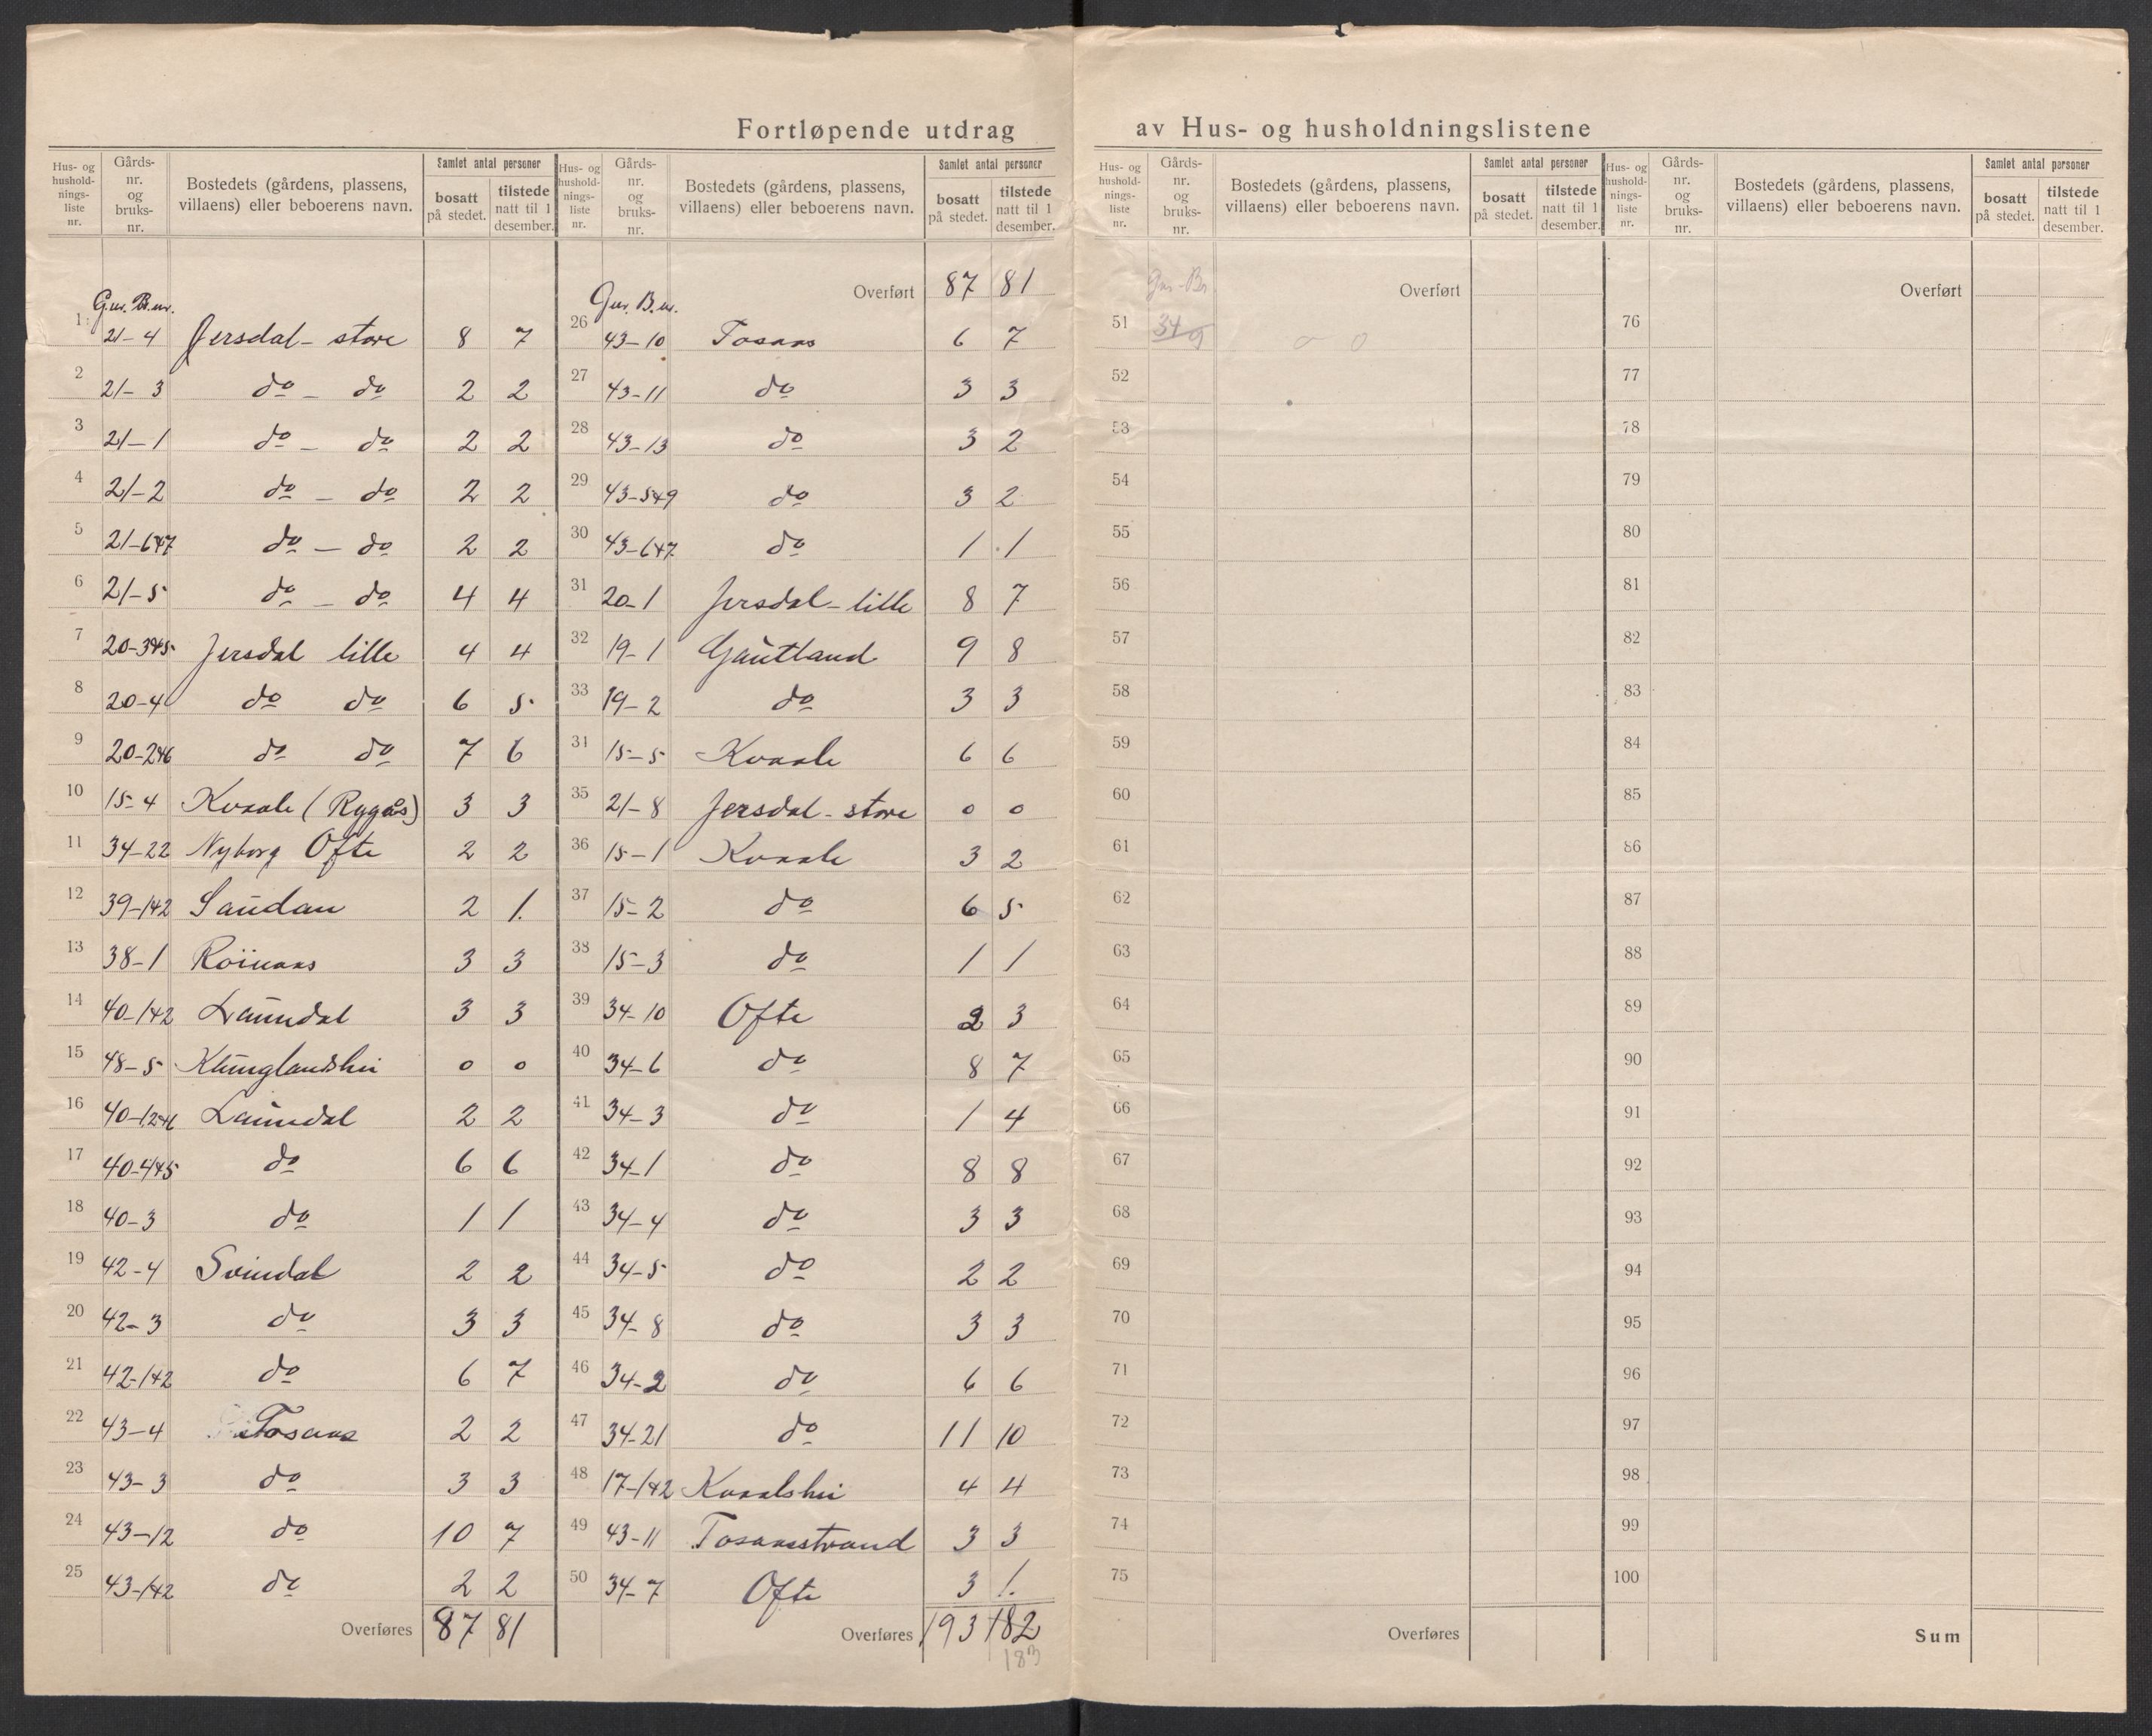 Fortløpende utdrag av Hus- og husholdningslistene
Hus- og hushold- nings- liste nr. | Gårds- nr. og bruks- nr. | Bostedets (gårdens, plassens, villaens) eller beboerens navn. | Samlet antal personer | bosatt på stedet. | tilstede natt til 1 desember.
Gnr. B.nr.
1 21-4 Jersdal - store 8 7
2 21-3 do - do 2 2
3 21-1 do - do 2 2
4 21-2 do - do 2 2
5 21-6+7 do - do 2 2
6 21-5 do - do 4 4
7 20-3+5 Jersdal lille 4 4
8 20-4 do do 6 5
9 20-2+6 do do 7 6
10 15-4 Kvaale (Rygås) 3 3
11 34-22 Nyborg Ofte 2 2
12 39-1+2 Saŭdan 2 1.
13 38-1 Röinaas 3 3
14 40-1+2 Laŭndal 3 3
15 48-5 Klŭnglandshei 0 0
16 40-1,2+6 Laŭndal 2 2
17 40-4+5 do 6 6
18 40-3 do 1 1
19 42-4 Svindal 2 2
20 42-3 do 3 3
21 42-1+2 do 6 7
22 43-4 Tosaas 2 2
23 43-3 do 3 3
24 43-12 do 10 7
25 43-1+2 do 2 2
Overføres 87 81
Hus- og hushold- nings- liste nr. | Gårds- nr. og bruks- nr. | Bostedets (gårdens, plassens, villaens) eller beboerens navn. | Samlet antal personer | bosatt på stedet. | tilstede natt til 1 desember.
Overført 87 81
Gnr. B.nr.
26 43-10 Tosaas 6 7
27 43-11 do 3 3
28 43-13 do 3 2
29 43-5+9 do 3 2
30 43-6+7 do 1 1
31 20-1 Jersdal - lille 8 7
32 19-1 Gaŭtland 9 8
33 19-2 do 3 3
34 15-5 Kvaale 6 6
35 21-8 Jersdal - store 0 0
36 15-1 Kvaale 3 2
37 15-2 do 6 5
38 15-3 do 1 1
39 34-10 Ofte 2 3
40 34-6 do 8 7
41 34-3 do 1 4
42 34-1 do 8 8
43 34-4 do 3 3
44 34-5 do 2 2
45 34-8 do 3 3
46 34-2 do 6 6
47 34-21 do 11 10
48 17-1+2 Kvaalshei 4 4
49 43-11 Tosaasstrand 3 3
50 34-7 Ofte 3 1.
Overføres 193 182
183
Hus- og hushold- nings- liste nr. | Gårds- nr. og bruks- nr. | Bostedets (gårdens, plassens, villaens) eller beboerens navn. | Samlet antal personer | bosatt på stedet. | tilstede natt til 1 desember.
Overført
Gnr - Bnr
51 34 9 0 0
52
53
54
55
56
57
58
59
60
61
62
63
64
65
66
67
68
69
70
71
72
73
74
75
Overføres
Hus- og hushold- nings- liste nr. | Gårds- nr. og bruks- nr. | Bostedets (gårdens, plassens, villaens) eller beboerens navn. | Samlet antal personer | bosatt på stedet. | tilstede natt til 1 desember.
Overført
76
77
78
79
80
81
82
83
84
85
86
87
88
89
90
91
92
93
94
95
96
97
98
99
100
Sum